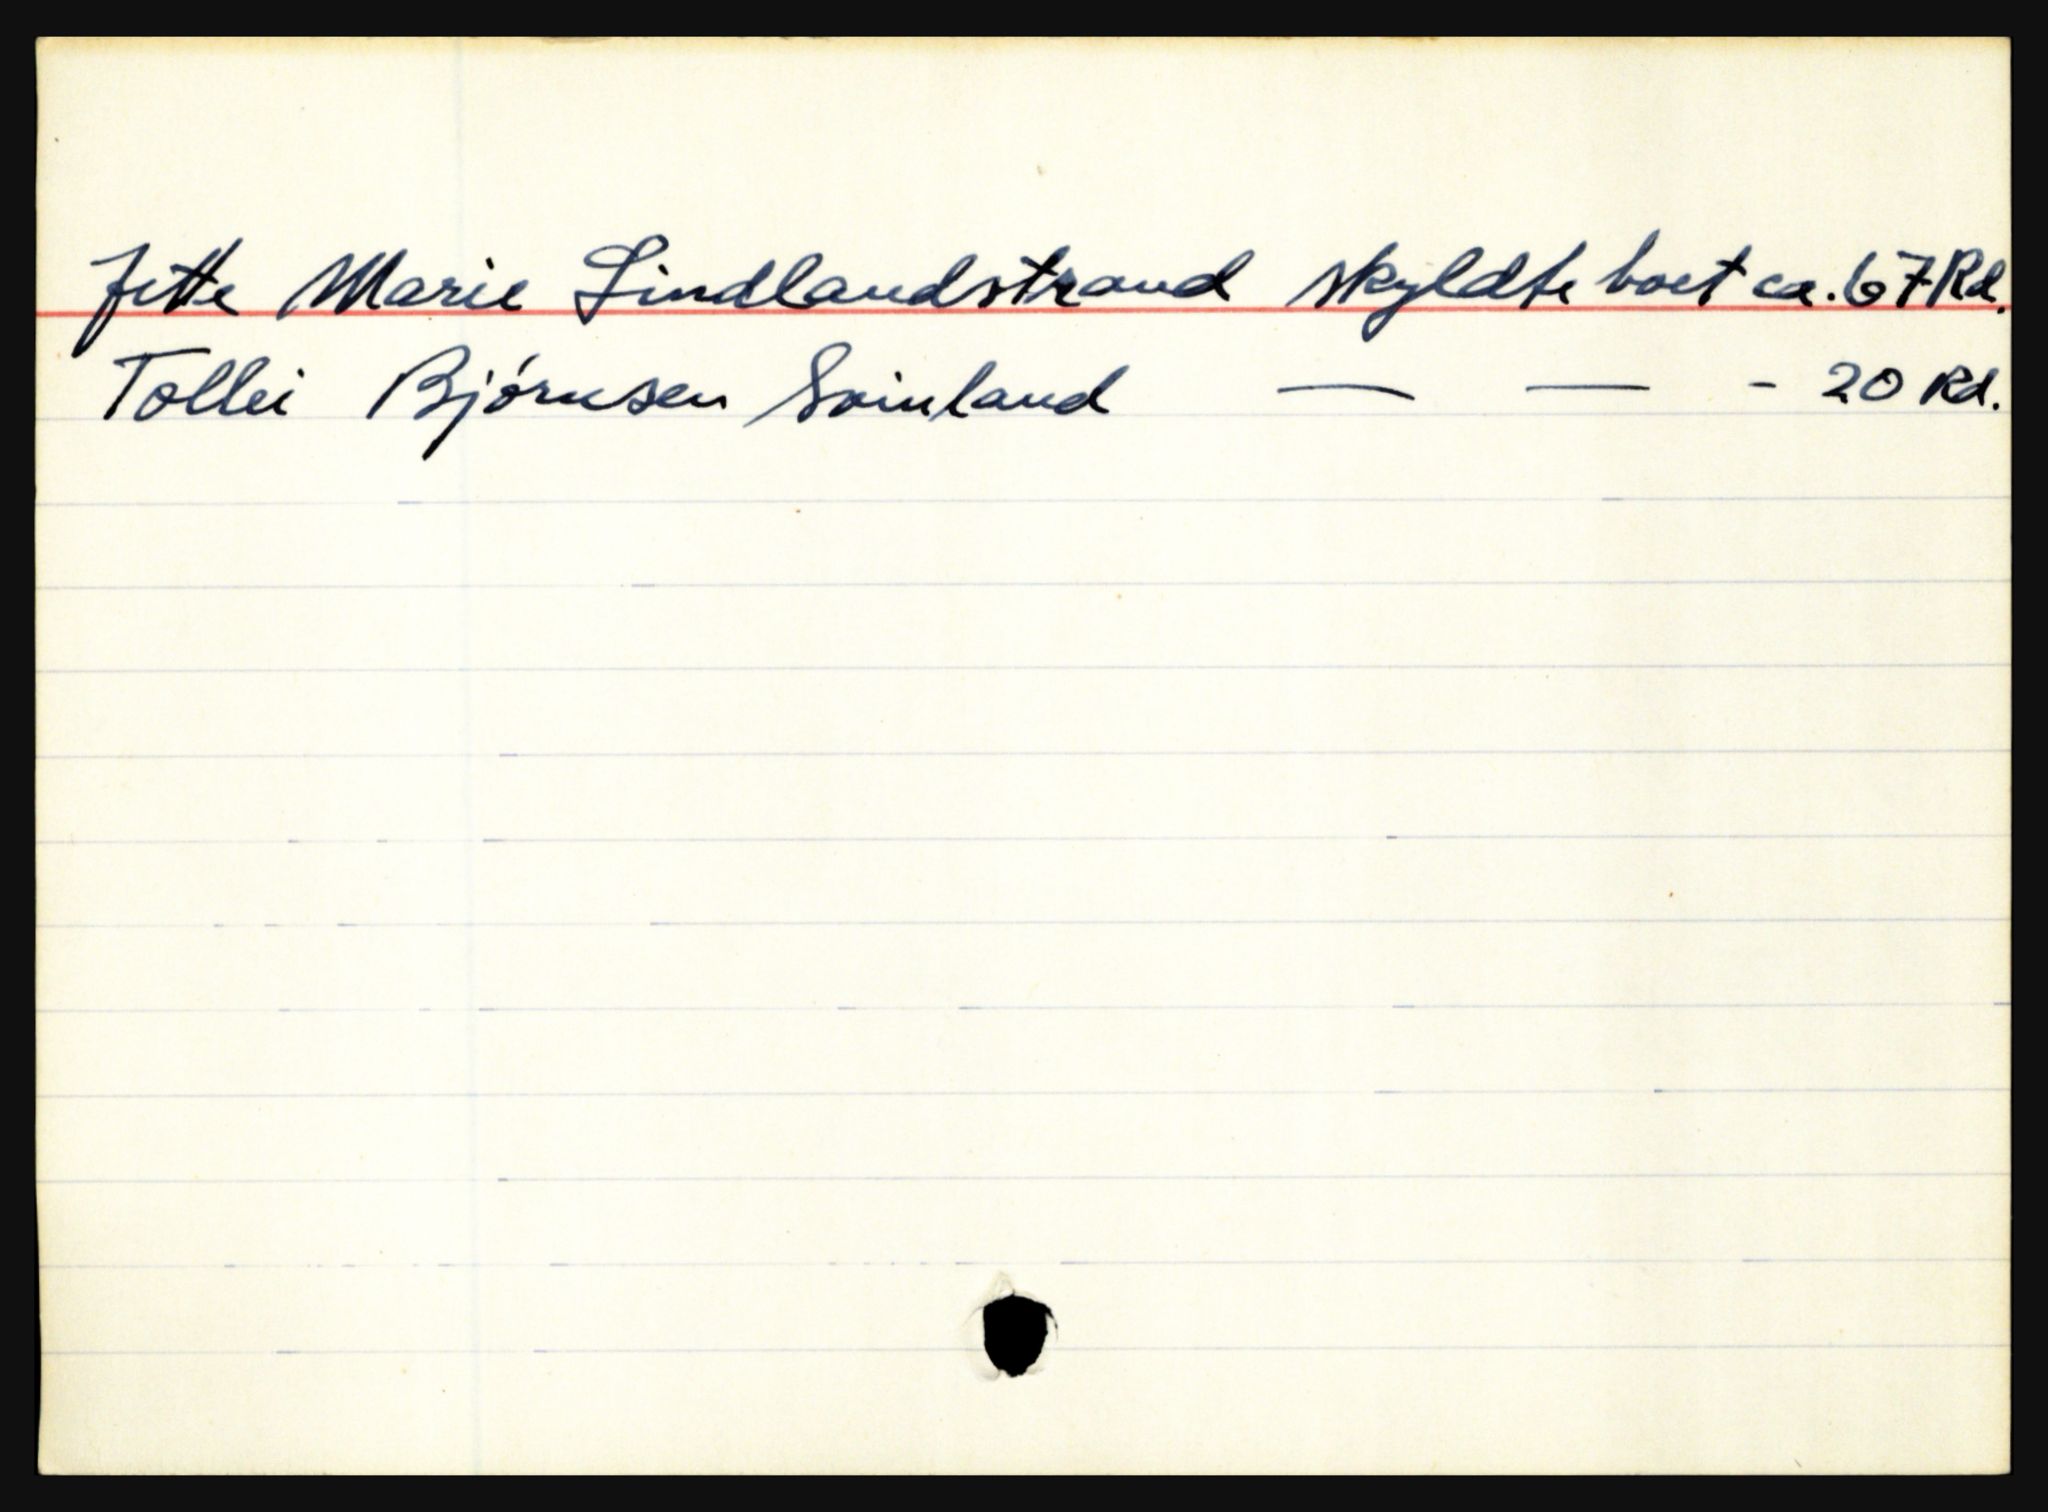 Jette Marie Lindlandstrand skyldte boet ca. 67 Rd.
Tollei Bjørnsen Svinland — — - 20 Rd.